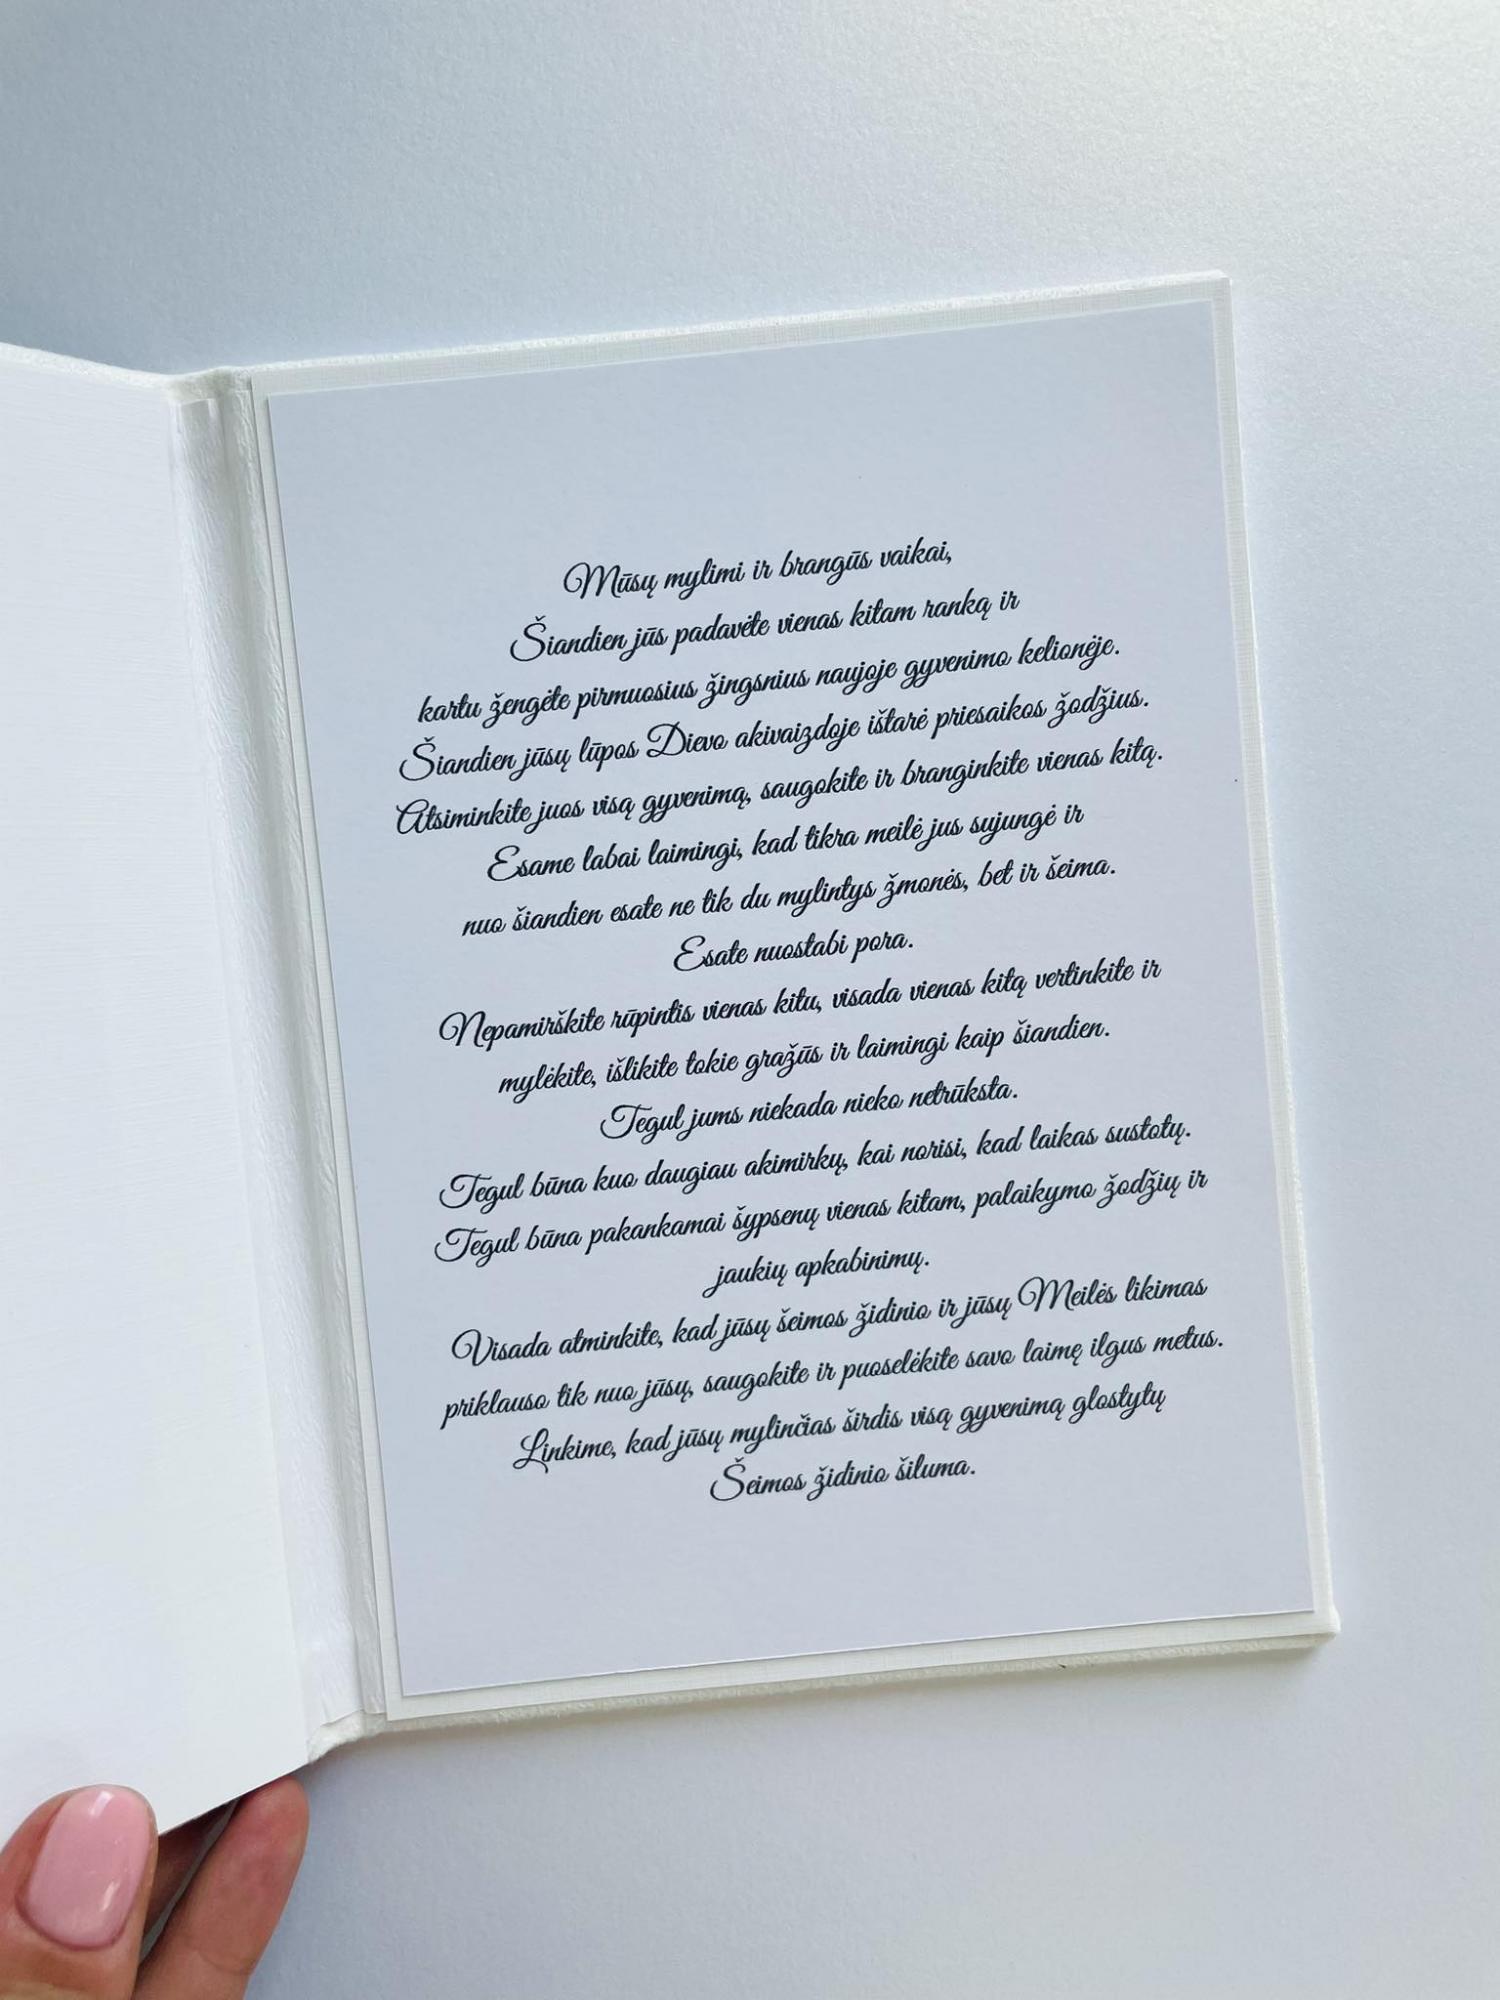 Mūsų mylimi ir brangūs vaikai,
Šiandien jūs padavėte vienas kitam ranką ir
kartu žengėte pirmuosius žingsnius naujoje gyvenimo kelionėje.
Šiandien jūsų lūpos Dievo akivaizdoje ištarė priesaikos žodžius.
Atsiminkite juos visą gyvenimą, saugokite ir branginkite vienas kitą.
Esame labai laimingi, kad tikra meilė jus sujungė ir
nuo šiandien esate ne tik du mylintys žmonės, bet ir šeima.
Esate nuostabi pora.
Nepamirškite rūpintis vienas kitu, visada vienas kitą vertinkite ir
mylėkite, išlikite tokie gražūs ir laimingi kaip šiandien.
Tegul jums niekada nieko netrūksta.
Tegul būna kuo daugiau akimirkų, kai norisi, kad laikas sustotų.
Tegul būna pakankamai šypsenų vienas kitam, palaikymo žodžių ir
jaukių apkabinimų.
Visada atminkite, kad jūsų šeimos židinio ir jūsų Meilės likimas
priklauso tik nuo jūsų, saugokite ir puoselėkite savo laimę ilgus metus.
Linkime, kad jūsų mylinčias širdis visą gyvenimą glostytų
Šeimos židinio šiluma.